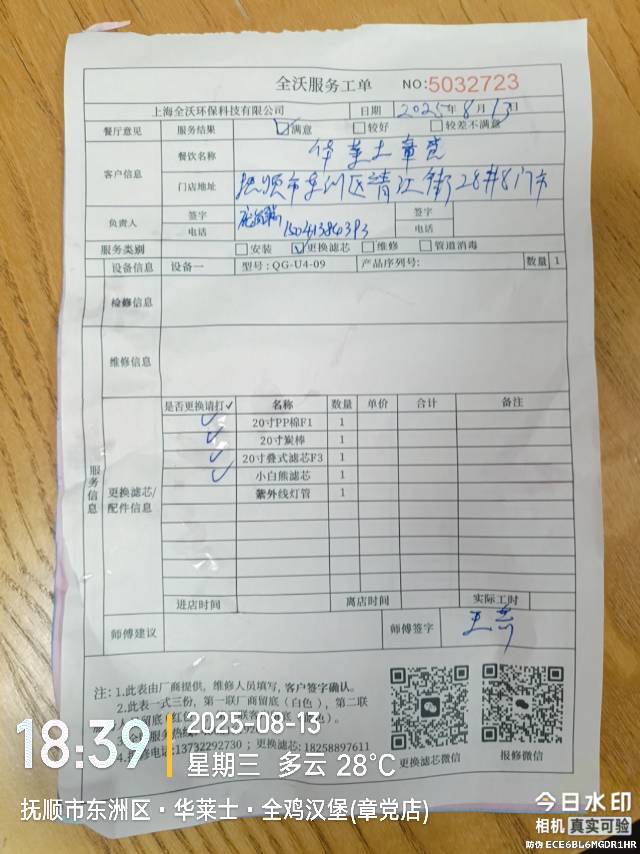 全沃服务工单 NO:5032723
上海全沃环保科技有限公司 日期 2025年8月13日
餐厅意见 服务结果 ☑满意 □较好 □较差不满意
客户信息 餐饮名称 华莱士章党
门店地址 抚顺市东洲区清江街28#8门市
负责人 签字 签字
电话 电话
服务类别 □安装 ☑更换滤芯 □维修 □管道消毒
设备信息 设备一 型号: QG-U4-09 产品序列号: 数量 1
检修信息
维修信息
服务信息
更换滤芯/配件信息
是否更换请打✓ 名称 数量 单价 合计 备注
✓ 20寸PP棉F1 1
✓ 20寸炭棒 1
✓ 20寸叠式滤芯F3 1
✓ 小白熊滤芯 1
紫外线灯管 1
进店时间 离店时间 实际工时
师傅建议 师傅签字
注: 1.此表由厂商提供, 维修人员填写, 客户签字确认。
2.此表一式三份, 第一联厂商留底(白色), 第二联
电话:13732292730 ; 更换滤芯: 18258897611
更换滤芯微信 报修微信
18:39
2025-08-13
星期三 多云 28°C
抚顺市东洲区·华莱士·全鸡汉堡(章党店)
今日水印
相机 真实可验
防伪 ECE6BL6MGDR1HR